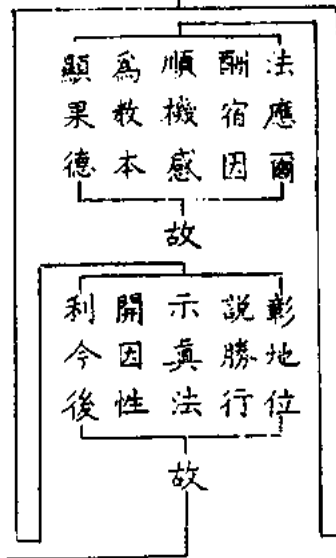 法應爾
酬宿因
順機感
為教本
顯果德
故
彰地位
說勝行
示真法
開因性
利今後
故